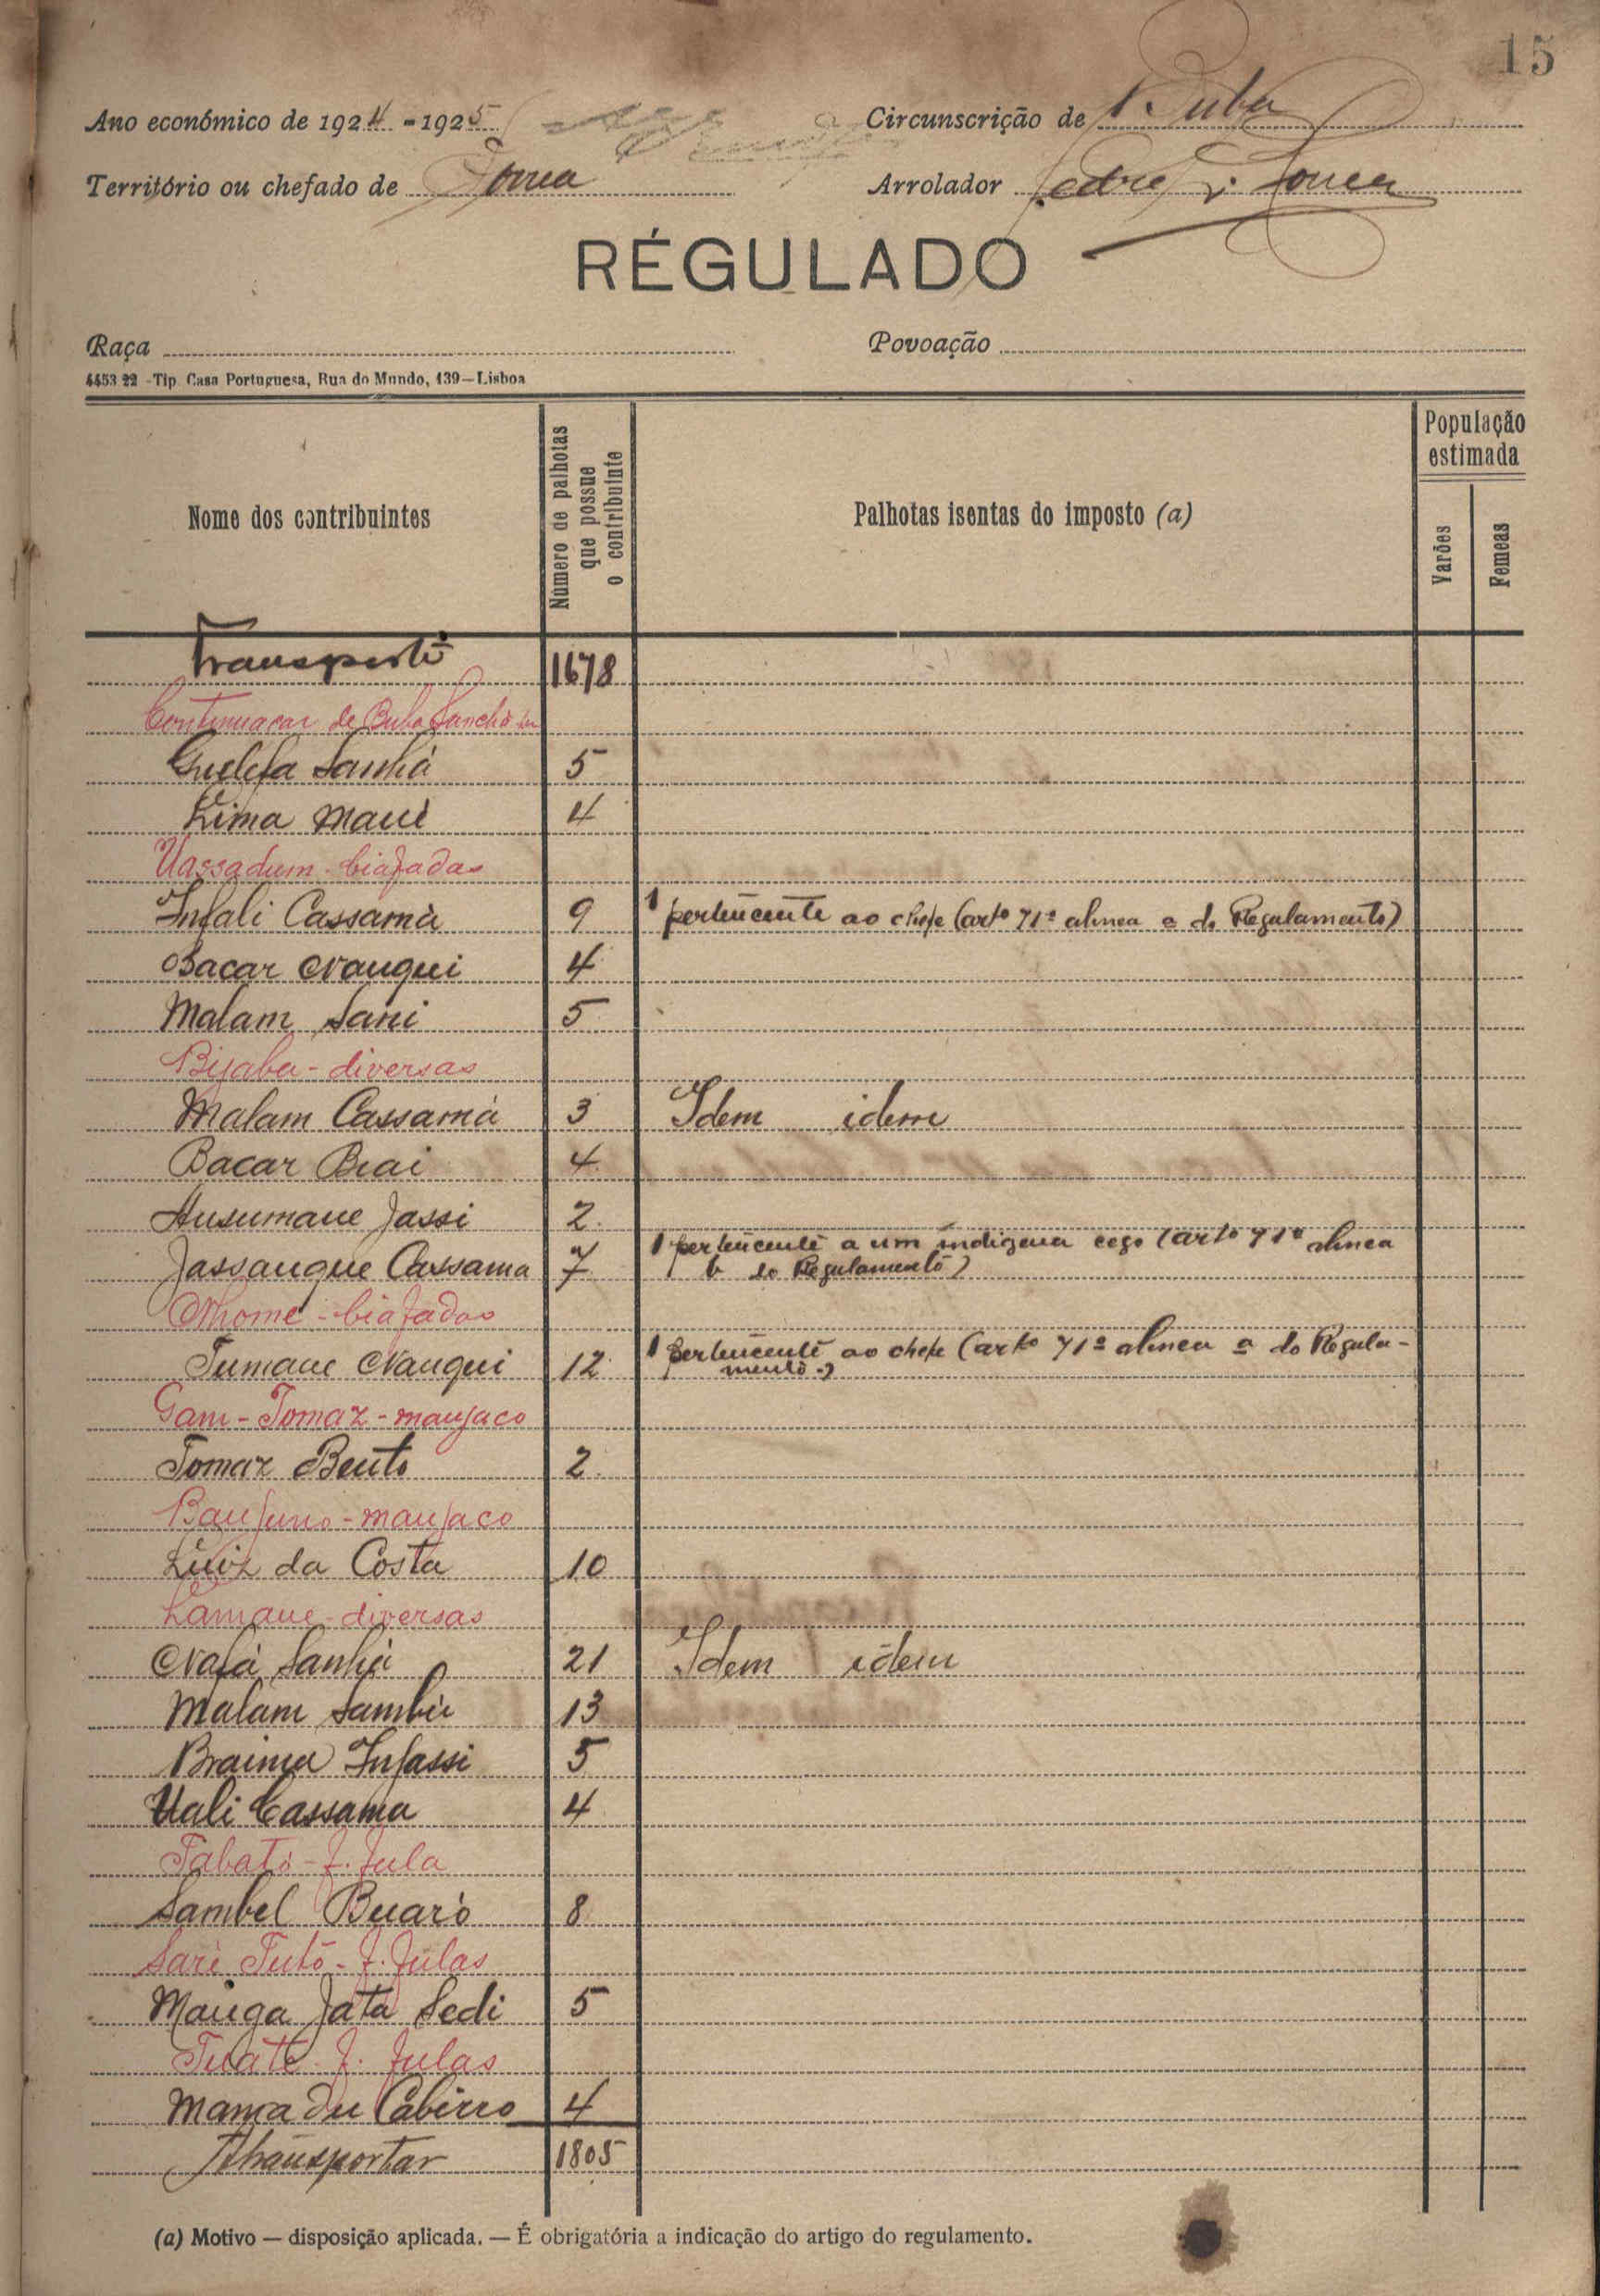 15
Ano económico de 1924-1925
Circunscrição de Buba
Território ou chefado de
Arrolador Pedro
RÉGULADO
Raça
Povoação
4453 22 - Tip. Casa Portuguesa, Rua do Mundo, 139—Lisboa
Nome dos contribuintes
Número de palhotas que possue o contribuinte
Palhotas isentas do imposto (a)
População estimada
Varões
Femeas
Transporte 1678
Continuacar de Buba
Guelefa Sanhá 5
Lima Mané 4
Uassadum - biafadas
Infali Cassamá 9 1 pertencente ao chefe (artº 71º alinea a do Regulamento)
Bacar Nanqui 4
Malam Sani 5
Bijaba - diversas
Malam Cassamá 3 Idem idem
Bacar Brai 4
Ansumane Jassi 2
Jassanque Cassama 7 1 pertencente a um indigena cego (artº 71º alinea
b do Regulamento)
Nhome - biafadas
Tumane Nanqui 12 1 pertencente ao chefe (artº 71º alinea a do Regula-
mento)
Gam-Tomaz-manjaco
Tomaz Bento 2
Banjuno-manjaco
Luiz da Costa 10
Lamane-diversas
Nafá Sanhá 21 Idem idem
Malam Sambú 13
Braima Infassi 5
Uali Cassama 4
Tabató-f. fula
Sambel Buaró 8
Saré Tutó-f. fulas
Manga Jata Sedi 5
Tuate-f. fulas
Mamadu Cabirro 4
Transportar 1805
(a) Motivo — disposição aplicada. — É obrigatória a indicação do artigo do regulamento.